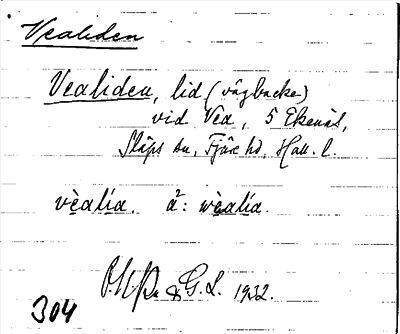 Vealiden
Vealiden, lid (vägbacke)
vid Vea, 5 Ekenäs,
Släps sn, Fjäre hd, Hall. l.
vèalía. a²: wèalía.
& G. L. 1932.
304